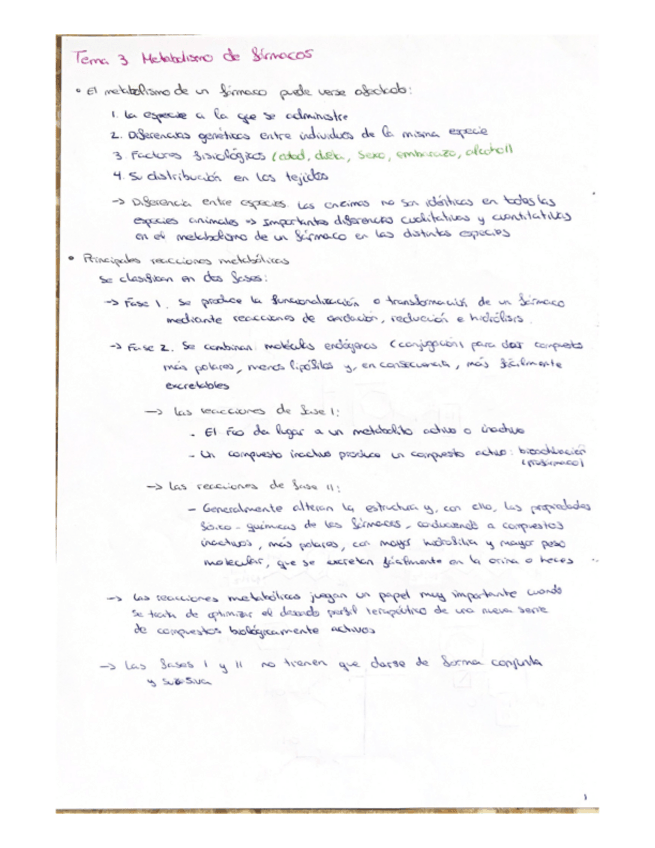 Tema 3 Metabolismo de fármacos
• El metabolismo de un fármaco puede verse afectado:
1. La especie a la que se administre
2. Diferencias genéticas entre individuos de la misma especie
3. Factores fisiológicos (edad, dieta, sexo, embarazo, alcohol)
4. Su distribución en los tejidos
→ Diferencia entre especies. Las enzimas no son idénticas en todas las
especies animales ⇒ Importantes diferencias cualitativas y cuantitativas
en el metabolismo de un fármaco en las distintas especies
• Principales reacciones metabólicas
Se clasifican en dos fases:
→ Fase 1. Se produce la funcionalización o transformación de un fármaco
mediante reacciones de oxidación, reducción e hidrólisis.
→ Fase 2. Se combinan moléculas endógenas (conjugación) para dar compuestos
más polares, menos lipófilos y, en consecuencia, más fácilmente
excretables
→ Las reacciones de fase I:
- El fco da lugar a un metabolito activo o inactivo
- Un compuesto inactivo produce un compuesto activo: bioactivación
(profármaco)
→ Las reacciones de fase II:
- Generalmente alteran la estructura y, con ello, las propiedades
físico-químicas de los fármacos, conduciendo a compuestos
inactivos, más polares, con mayor hidrofilia y mayor peso
molecular, que se excretan fácilmente en la orina o heces
→ Las reacciones metabólicas juegan un papel muy importante cuando
se trata de optimizar el deseado perfil terapéutico de una nueva serie
de compuestos biológicamente activos
→ Las fases I y II no tienen que darse de forma conjunta
y sucesiva
1